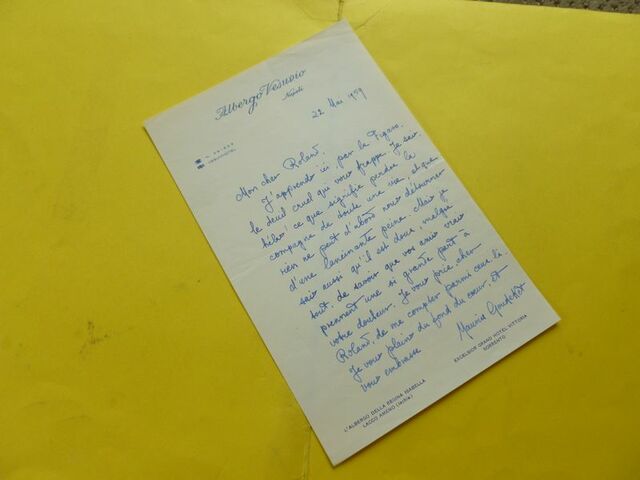 Albergo Vesuvio
Napoli
22 Mai 1959
Mon cher Roland,
J'apprends ici, par le Figaro,
le deuil cruel qui vous frappe. Je sais,
hélas! ce que signifie perdre la
compagne de toute une vie, et que
rien ne peut d'abord nous détourner
d'une lancinante peine. Mais je
sais aussi qu'il est doux, malgré
tout, de savoir que vos amis vrais
prennent une si grande part à
votre douleur. Je vous prie, cher
Roland, de me compter parmi ceux-là.
Je vous plains du fond du cœur, et
vous embrasse
Maurice Goudeket
EXCELSIOR GRAND HOTEL VITTORIA
SORRENTO
L'ALBERGO DELLA REGINA ISABELLA
LACCO AMENO (ISCHIA)